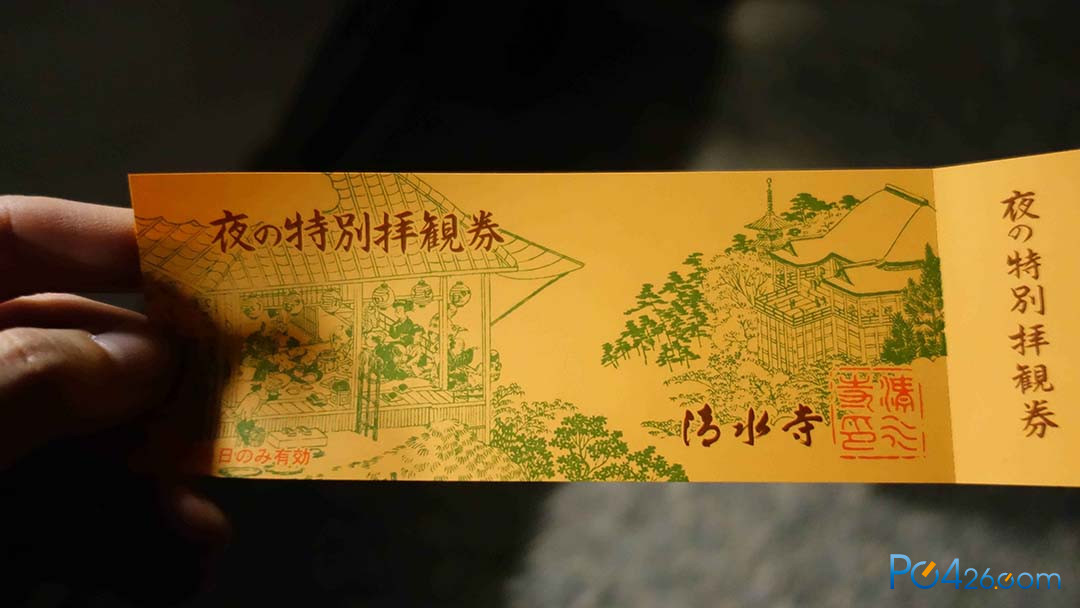 夜の特別拝観券
日のみ有効
清水寺
清水寺印
夜の特別拝観券
PC426.com